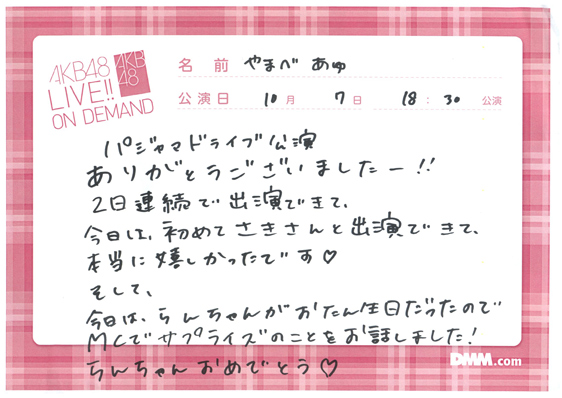 AKB48
LIVE!!
ON DEMAND
AKB
48
名前 やまべ あゆ
公演日 10月 7日 18:30 公演
パジャマドライブ公演
ありがとうございましたー!!
2日連続で出演できて、
今日は、初めてさきさんと出演できて、
本当に嬉しかったです♡
そして、
今日は、らんちゃんがおたん生日だったので
MCでサプライズのことをお話しました!
らんちゃんおめでとう♡
DMM.com